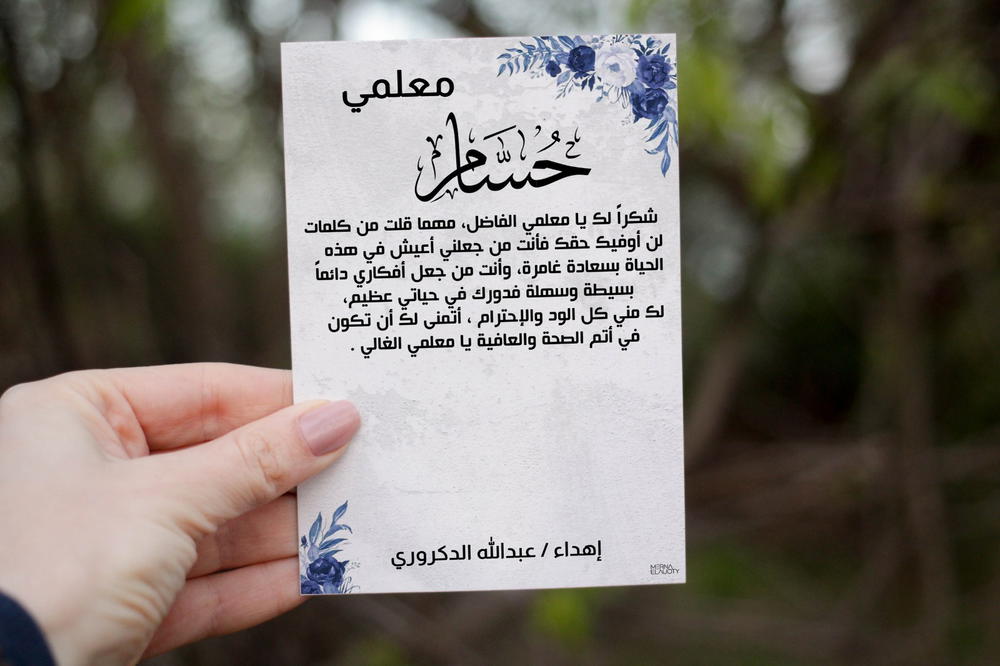 معلمي
حسام
شكراً لك يا معلمي الفاضل، مهما قلت من كلمات
لن أوفيك حقك فأنت من جعلني أعيش في هذه
الحياة بسعادة غامرة، وأنت من جعل أفكاري دائماً
بسيطة وسهلة فدورك في حياتي عظيم،
لك مني كل الود والإحترام ، أتمنى لك أن تكون
في أتم الصحة والعافية يا معلمي الغالي .
إهداء / عبدالله الدكروري
MERNA